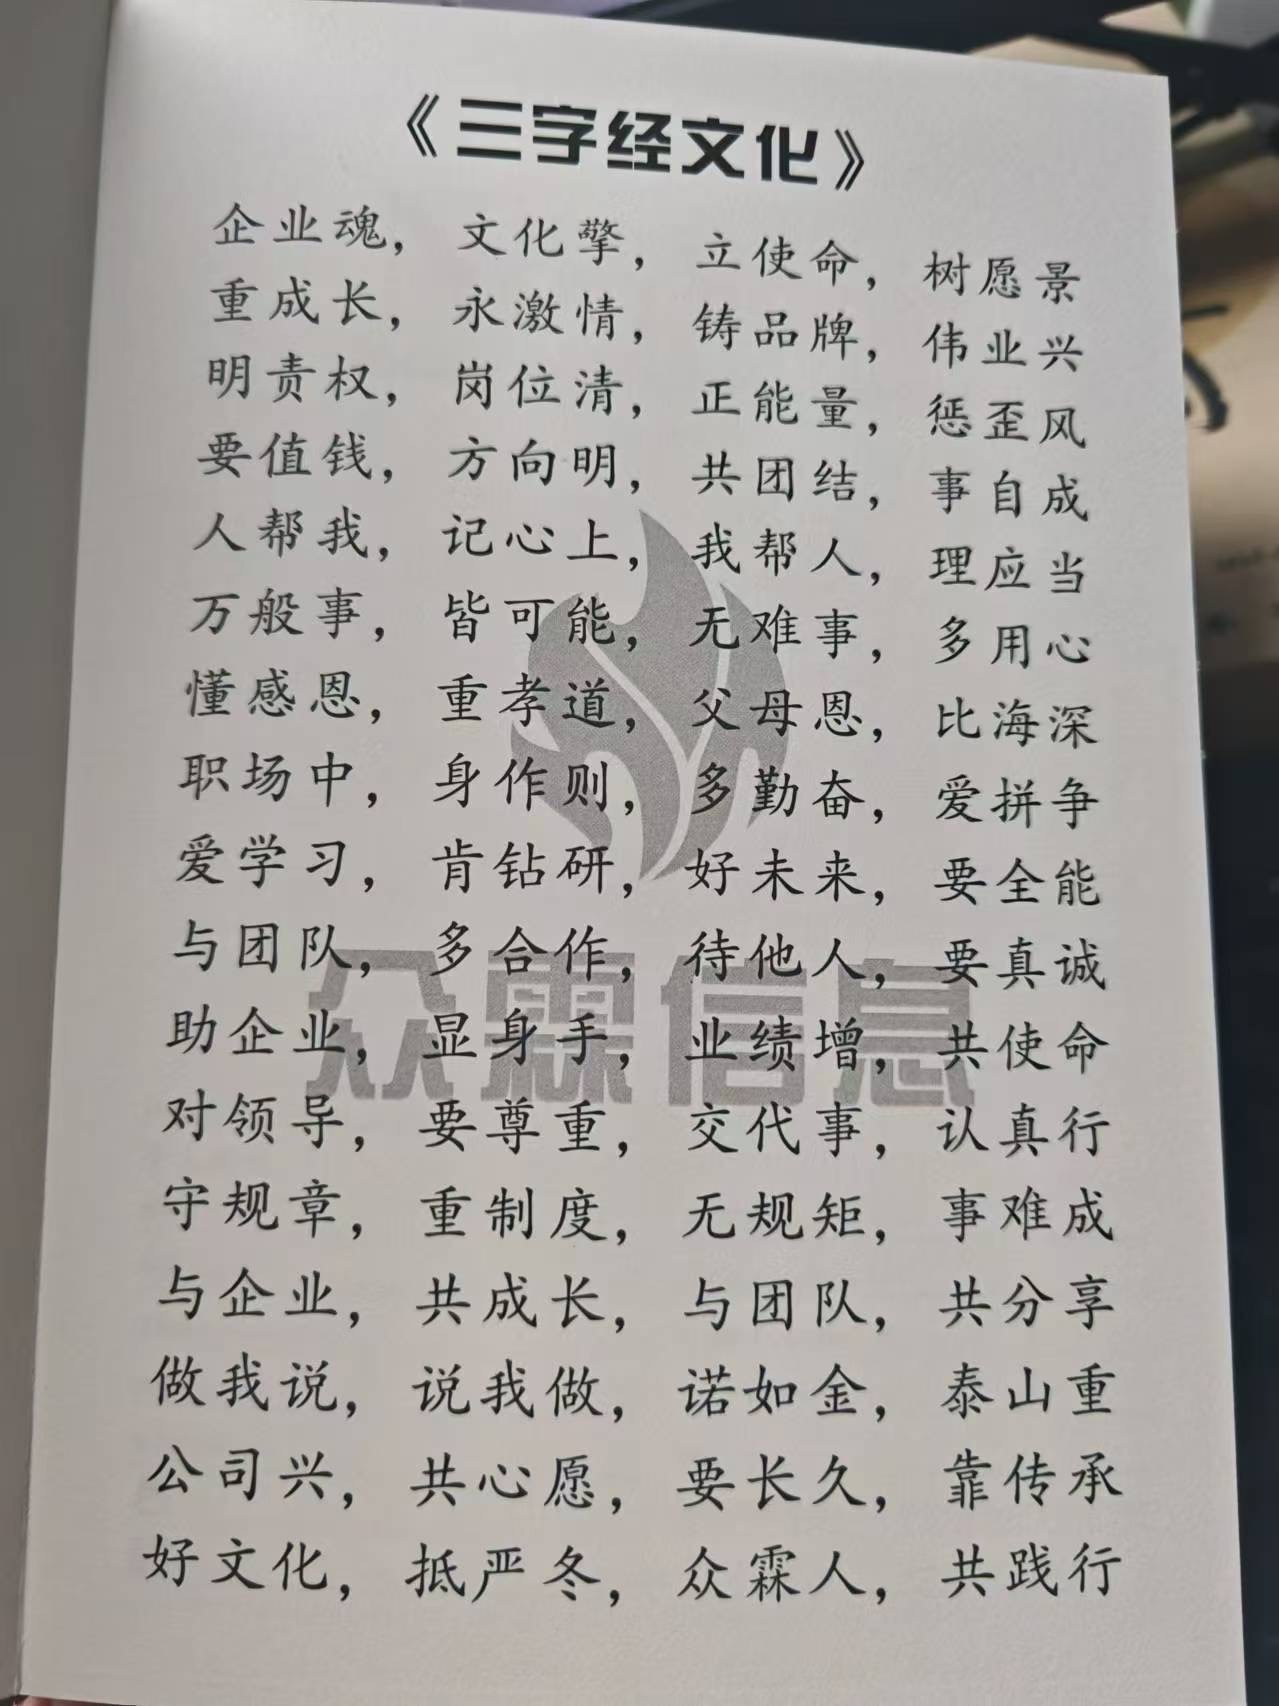 《三字经文化》
企业魂， 文化擎， 立使命， 树愿景
重成长， 永激情， 铸品牌， 伟业兴
明责权， 岗位清， 正能量， 惩歪风
要值钱， 方向明， 共团结， 事自成
人帮我， 记心上， 我帮人， 理应当
万般事， 皆可能， 无难事， 多用心
懂感恩， 重孝道， 父母恩， 比海深
职场中， 身作则， 多勤奋， 爱拼争
爱学习， 肯钻研， 好未来， 要全能
与团队， 多合作， 待他人， 要真诚
众霖信息
助企业， 显身手， 业绩增， 共使命
对领导， 要尊重， 交代事， 认真行
守规章， 重制度， 无规矩， 事难成
与企业， 共成长， 与团队， 共分享
做我说， 说我做， 诺如金， 泰山重
公司兴， 共心愿， 要长久， 靠传承
好文化， 抵严冬， 众霖人， 共践行